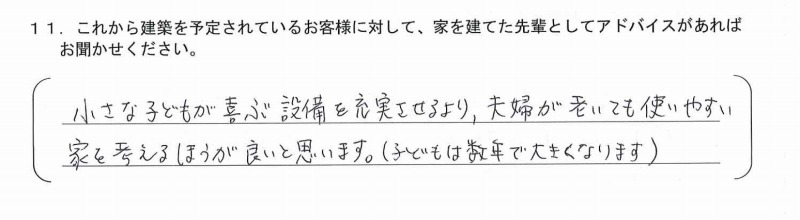 １１．これから建築を予定されているお客様に対して、家を建てた先輩としてアドバイスがあれば
お聞かせください。
小さな子どもが喜ぶ設備を充実させるより，夫婦が老いても使いやすい
家を考えるほうが良いと思います。(子どもは数年で大きくなります)